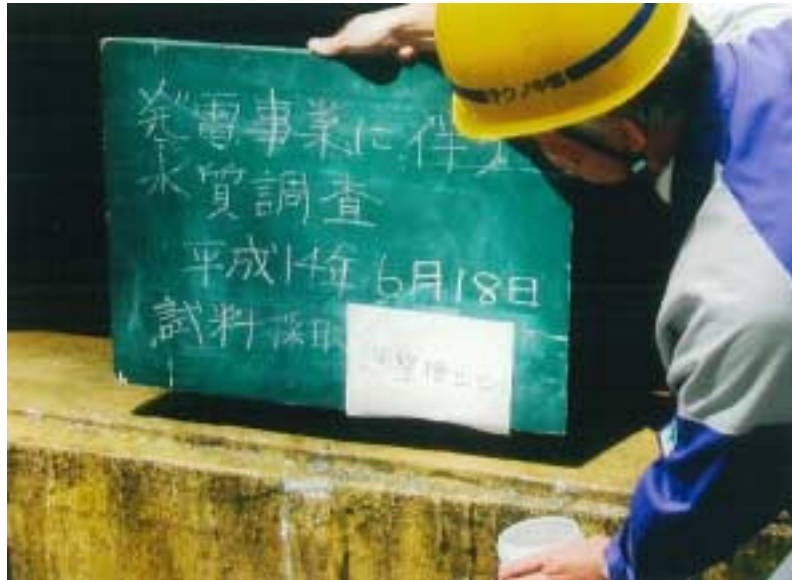 発電事業に伴う
水質調査
平成14年 6月18日
試料採取